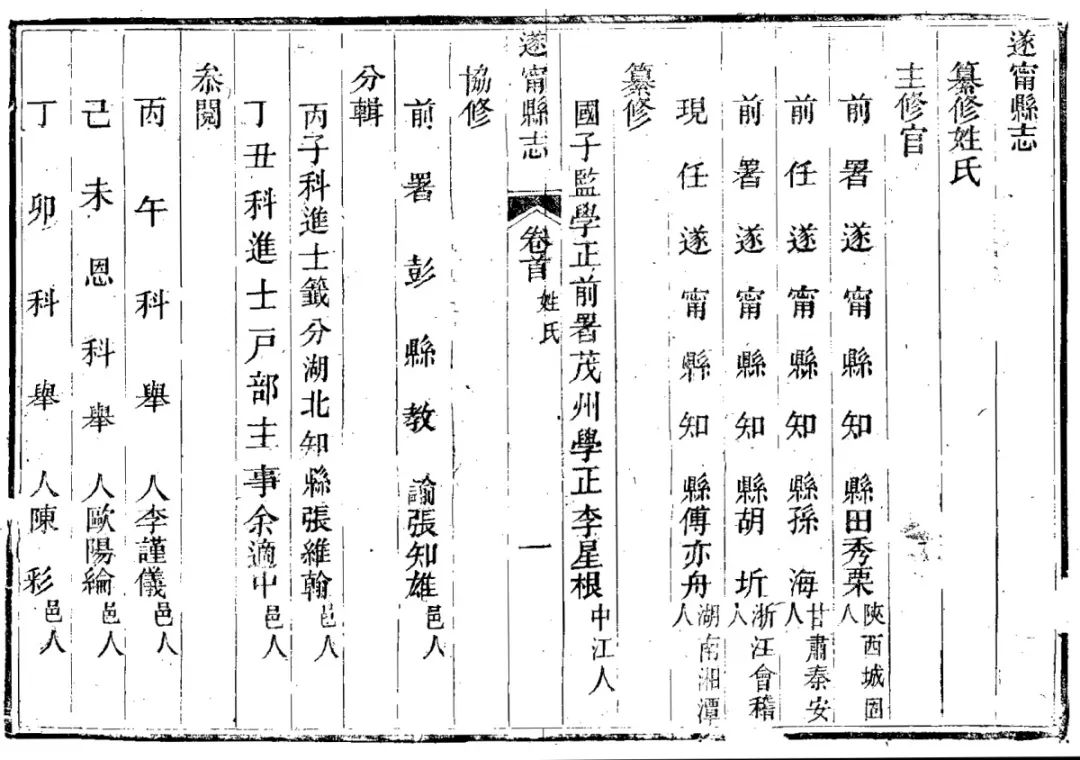 遂甯縣志
纂修姓氏
主修官
前署遂甯縣知縣田秀栗陝西城固人
前任遂甯縣知縣孫海甘肅秦安人
前署遂甯縣知縣胡圻浙江會稽人
現任遂甯縣知縣傅亦舟湖南湘潭人
纂修
國子監學正前署茂州學正李星根中江人
遂甯縣志 卷首 姓氏 一
協修
前署彭縣教諭張知雄邑人
分輯
丙子科進士籤分湖北知縣張維翰邑人
丁丑科進士戸部主事余適中邑人
叅閱
丙午科舉人李謹儀邑人
己未恩科舉人歐陽綸邑人
丁卯科舉人陳彩邑人